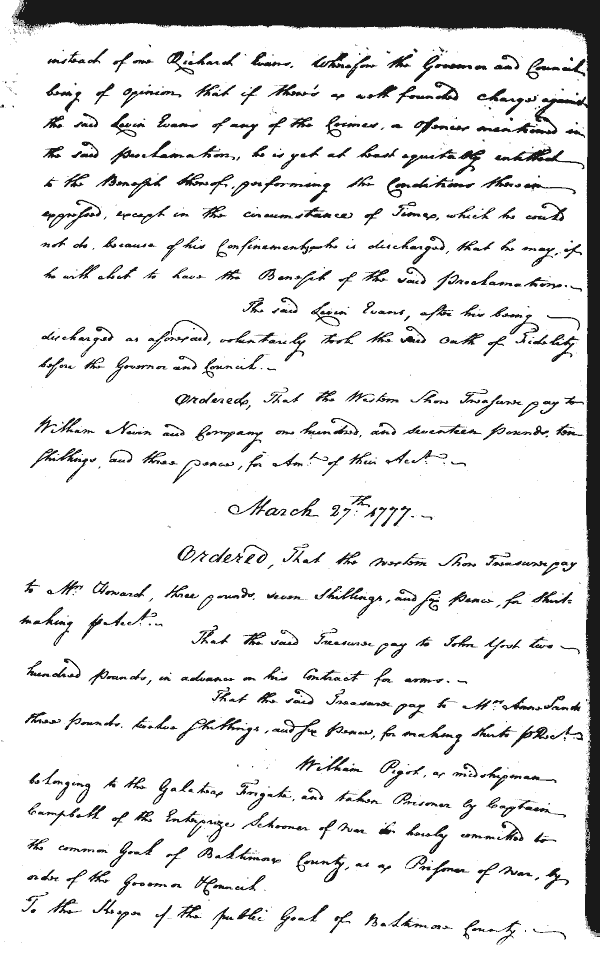 instead of one Richard Evans. Wherefore the Governor and Council
being of opinion, that if there's a well founded charge against
the said Levin Evans of any of the Crimes, a Offences mentioned in
the said Proclamation, he is yet at least equitably entitled
to the Benefit thereof, performing the Conditions therein
expressed, except in the circumstance of Time, which he could
not do, because of his Confinement, he is discharged, that he may, if
he will elect to have the Benefit of the said Proclamation.
The said Levin Evans, after his being
discharged as aforesaid, voluntarily took the said Oath of Fidelity
before the Governor and Council.
Ordered, That the Western Shore Treasurer pay to
William Nevin and Company one hundred, and seventeen Pounds, ten
Shillings, and three pence, for Amt. of their Acct.
March 27th 1777.
Ordered, That the western Shore Treasurer pay
to Mrs Howard, three pounds, seven Shillings, and six Pence, for Shirt-
making p Acct.
That the said Treasurer pay to John Yost two
hundred Pounds, in advance on his Contract for arms.
That the said Treasurer pay to Mrs Anne Sands
three Pounds, twelve Shillings, and six Pence, for making Shirts p Acct.
William Pigot, a midshipman
belonging to the Galatea Frigate, and taken Prisoner by Captain
Campbell of the Enterprize Schooner of War is hereby committed to
the common Goal of Baltimore County, as a Prisoner of War, by
order of the Governor & Council.
To the Keeper of the public Goal of Baltimore County.